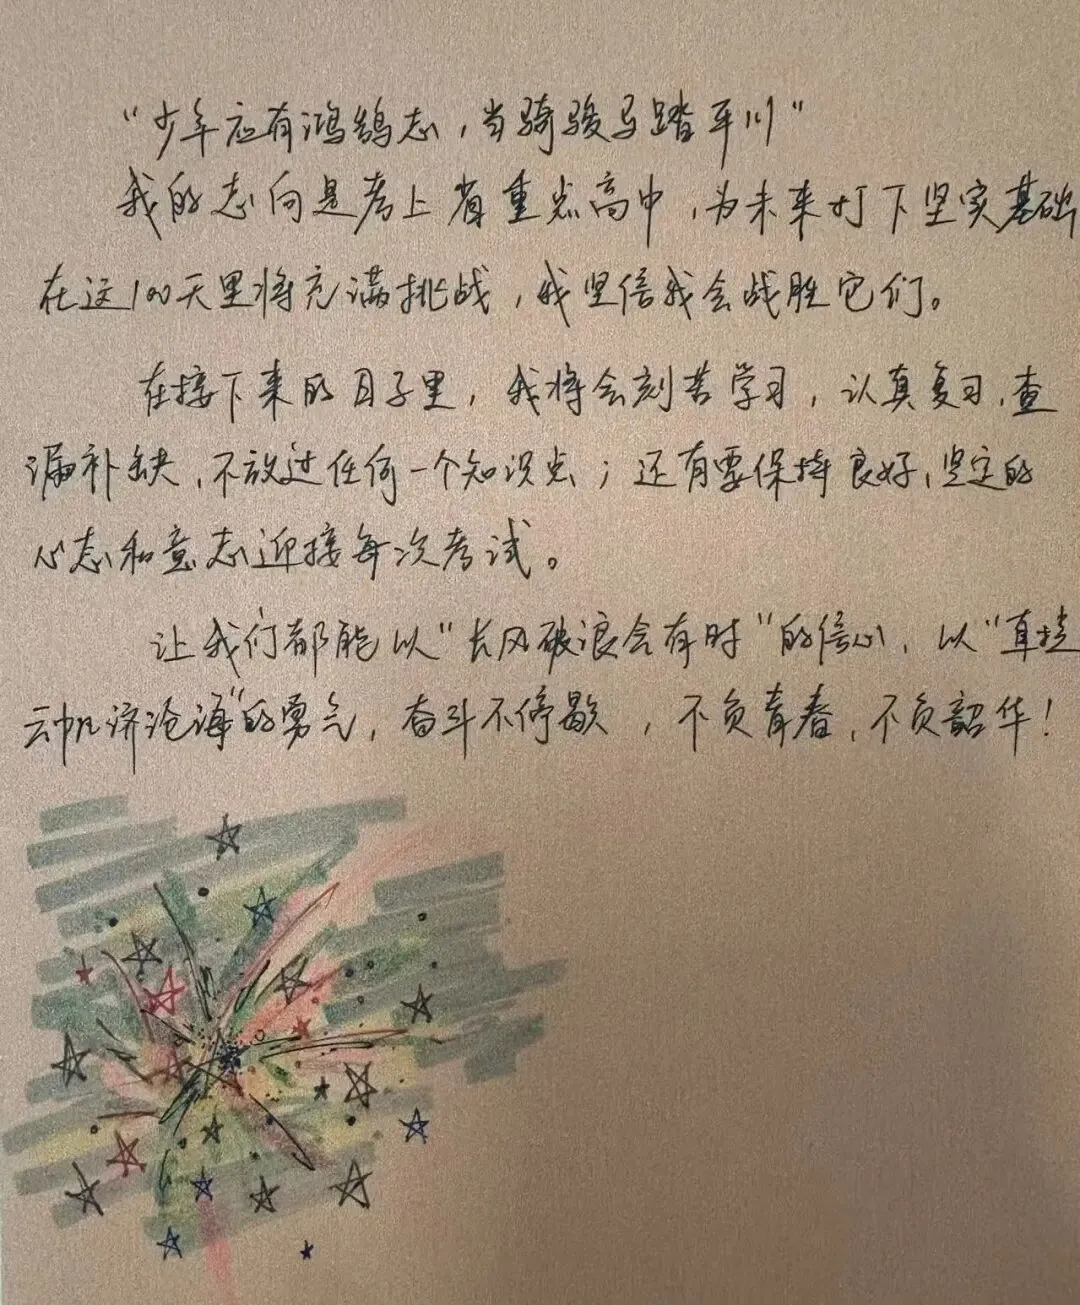 “少年应有鸿鹄志，当骑骏马踏平川”
我的志向是考上省重点高中，为未来打下坚实基础
在这100天里将充满挑战，我坚信我会战胜它们。
在接下来的日子里，我将会刻苦学习，认真复习，查
漏补缺，不放过任何一个知识点；还有要保持良好，坚定的
心态和意志迎接每次考试。
让我们都能以“长风破浪会有时”的信心，以“直挂
云帆济沧海”的勇气，奋斗不停歇，不负青春，不负韶华！